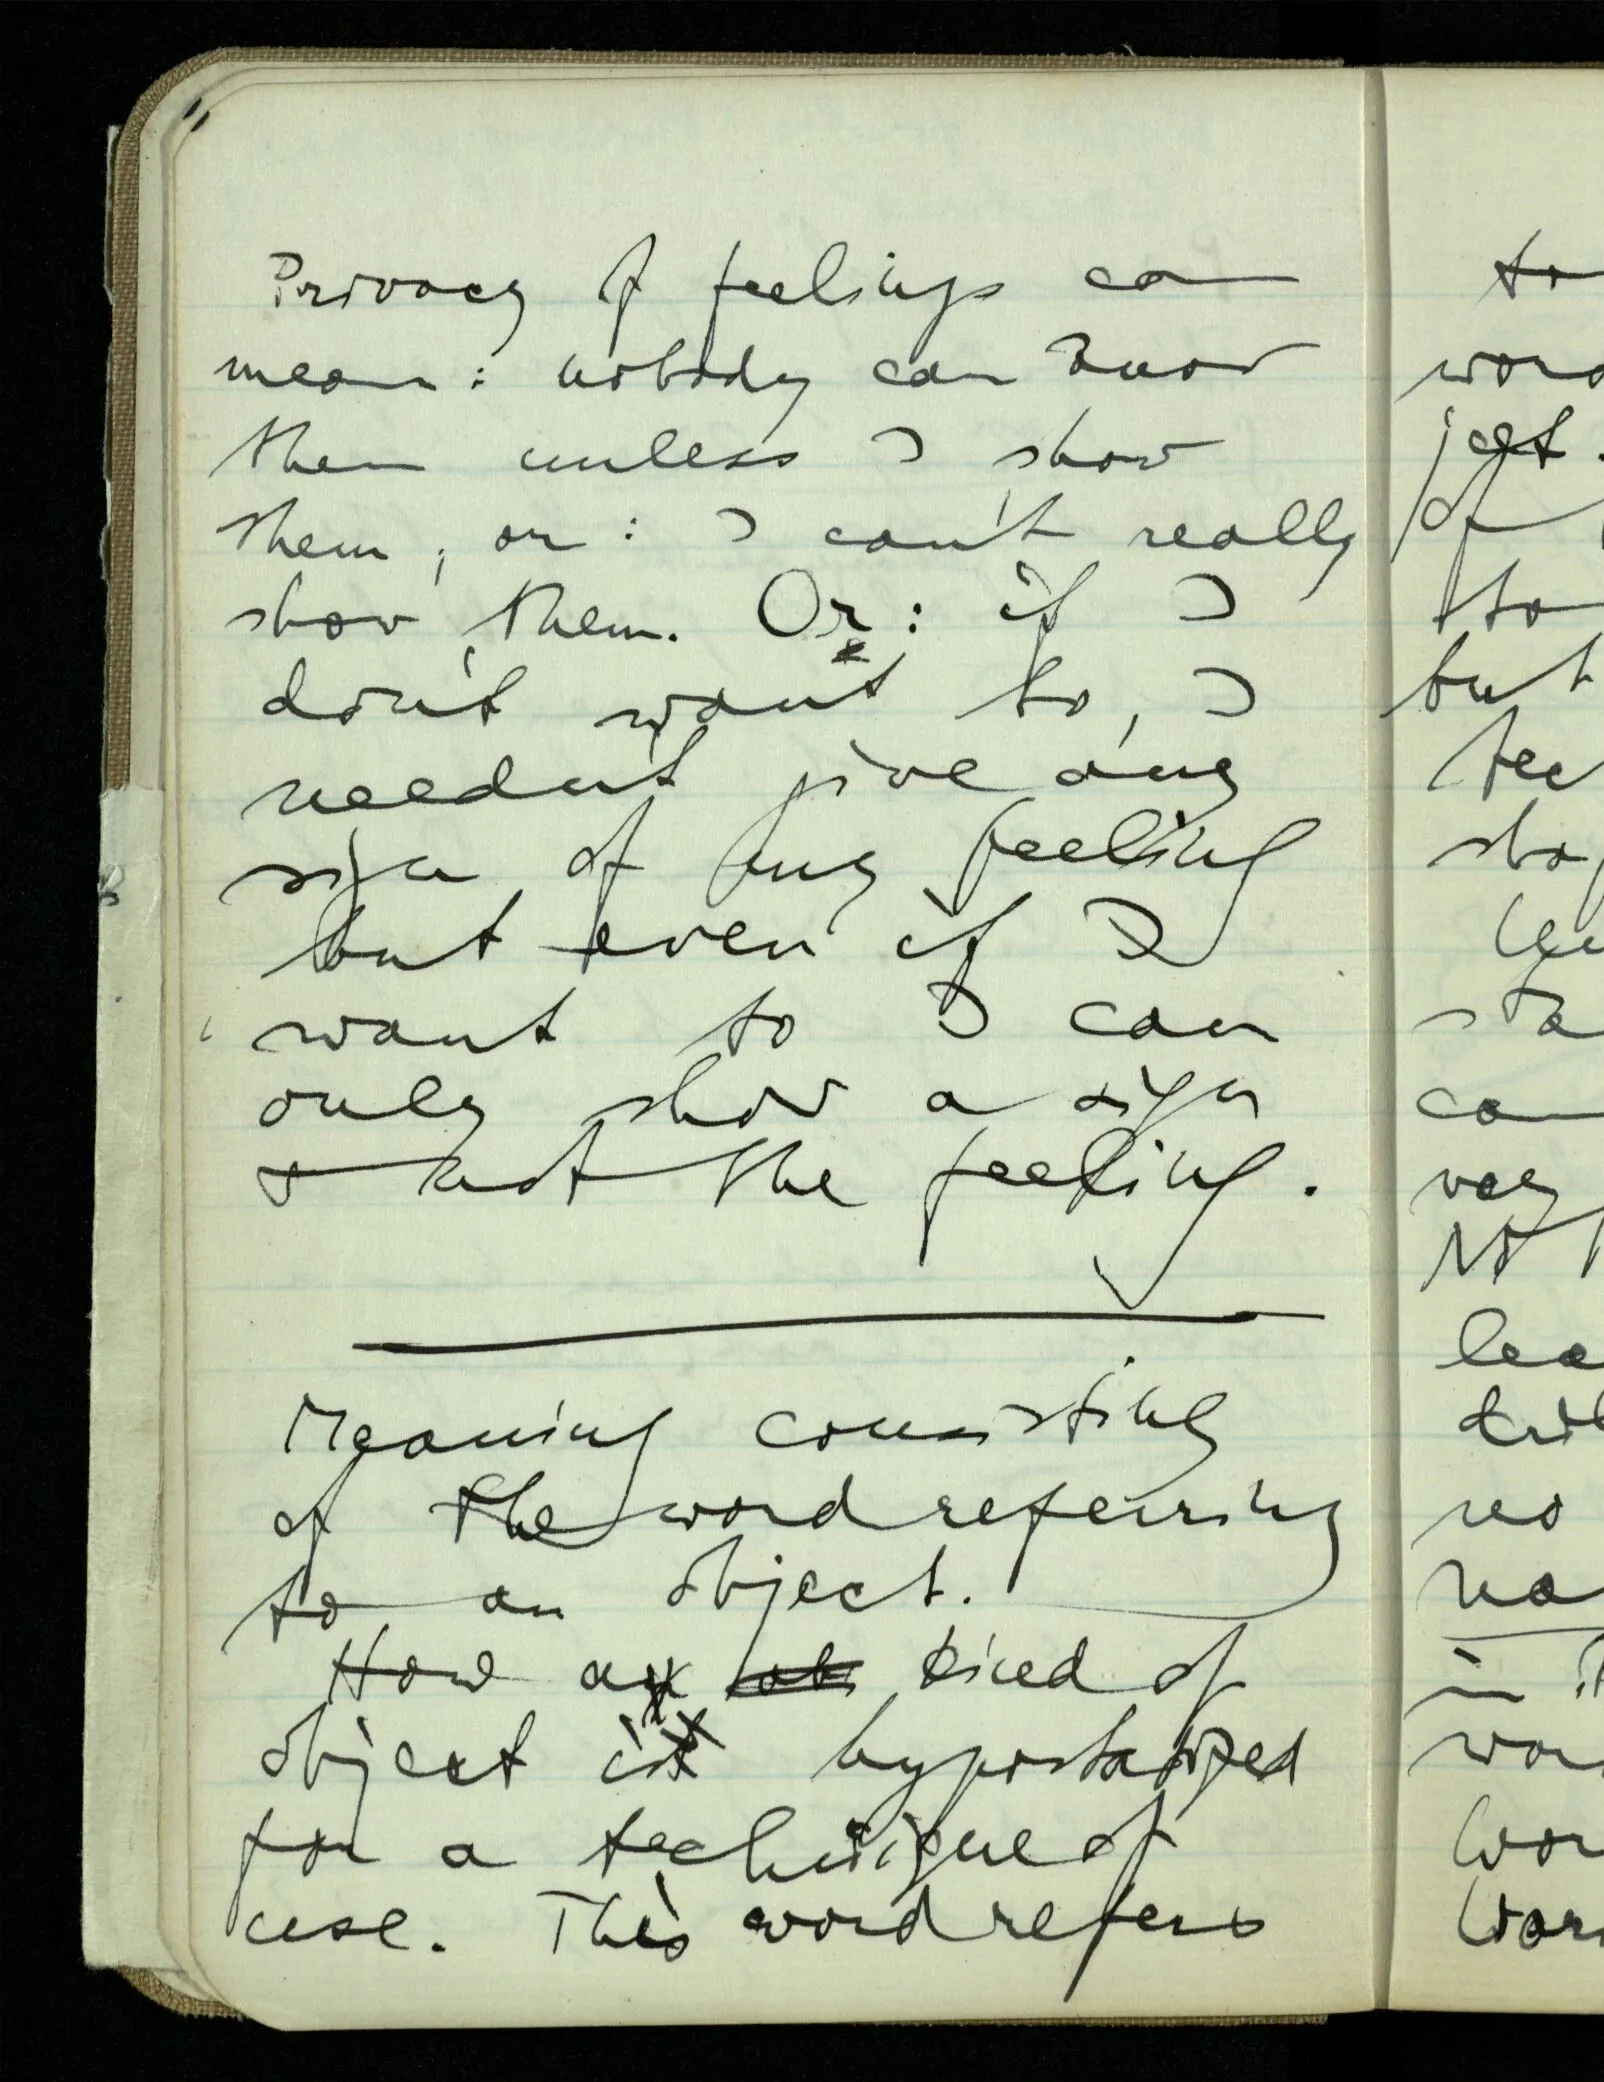 Privacy of feelings can
mean: nobody can know
them unless I show
them, or: I can't really
show them. Or: if I
don't want to, I
needn't give any
sign of my feeling
but even if I
want to I can
only show a sign
& not the feeling.
Meaning consisting
of the word referring
to an object.
How a kind of
object is hypostatized
for a technique of
use. This word refers
to
but